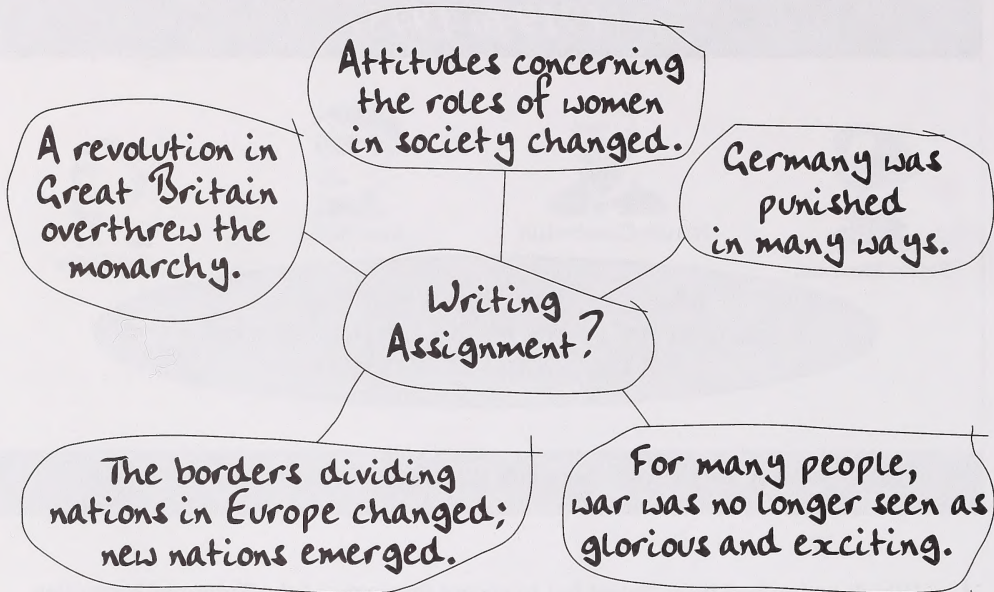 Attitudes concerning
the roles of women
in society changed.
A revolution in
Great Britain
overthrew the
monarchy.
Germany was
punished
in many ways.
Writing
Assignment?
The borders dividing
nations in Europe changed;
new nations emerged.
For many people,
war was no longer seen as
glorious and exciting.